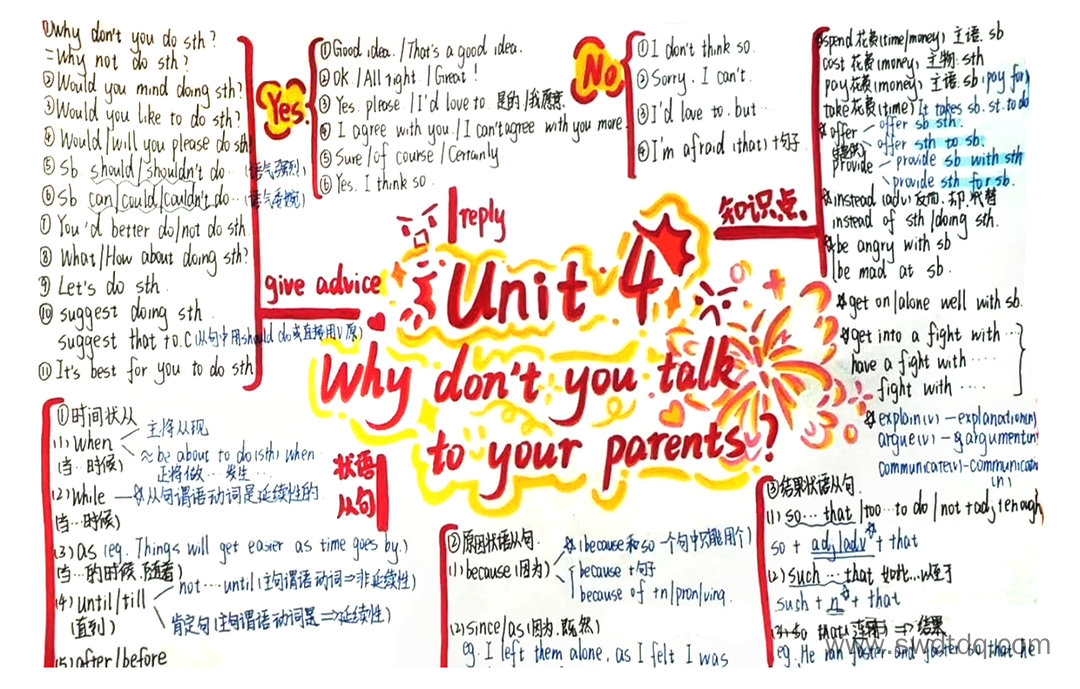 ①Why don't you do sth?
=Why not do sth?
②Would you mind doing sth?
③Would you like to do sth?
④Would/will you please do sth
⑤Sb should/shouldn't do…(语气强烈)
⑥Sb can/could/couldn't do…(语气委婉)
⑦You'd better do/not do sth.
⑧What/How about doing sth?
⑨Let's do sth.
⑩suggest doing sth.
suggest that 从句(从句中用should do或直接用V原)
⑪It's best for you to do sth
give advice
Yes.
①Good idea./That's a good idea.
②OK/All right/Great!
③Yes. please/I'd love to 是的/我愿意.
④I agree with you./I can't agree with you more.
⑤Sure/of course/Certainly
⑥Yes. I think so.
No
①I don't think so.
②Sorry. I can't.
③I'd love to. but…
④I'm afraid (that)+句子
reply
知识点
spend 花费(time/money) 主语. sb
cost 花费(money) 主物. sth
pay花费(money) 主语. sb (pay for)
take花费(time) It takes sb. st. to do
offer
offer sb sth.
offer sth to sb.
provide
provide sb with sth
provide sth for sb.
instead (adv)反而.却.代替
instead of sth/doing sth.
be angry with sb
be mad at sb.
get on/alone well with sb.
get into a fight with…
have a fight with…
fight with…
explain(v)—explanation(n)
argue(v)—argument(n)
communicate(v)-communication
(n)
Unit 4
Why don't you talk
to your parents?
状语
从句
①时间状从
(1) When
(当…时候)
主将从现
≈be about to do(sth) when
正将做…发生…
(2) While —从句谓语动词是延续性的
(当…时候)
(3) as (eg. Things will get easier as time goes by.)
(当…的时候.随着)
(4) until/till
(直到)
not…until(主句谓语动词⇒非延续性)
肯定句(主句谓语动词是⇒延续性)
(5) after/before
②原因状语从句.
(1) because(因为)
(because和so一个句中只能用个)
because +句子
because of +n/pron/ving.
(2) since/as(因为.既然)
eg. I left them alone, as I felt I was
③结果状语从句.
(1) so…that/too…to do/not+adj enough
so + adj/adv + that
(2) such…that 如此…以至于
such + n + that
(3) so that ⇒ 结果
eg. He ran faster and faster so that he
www.swdtdq.com